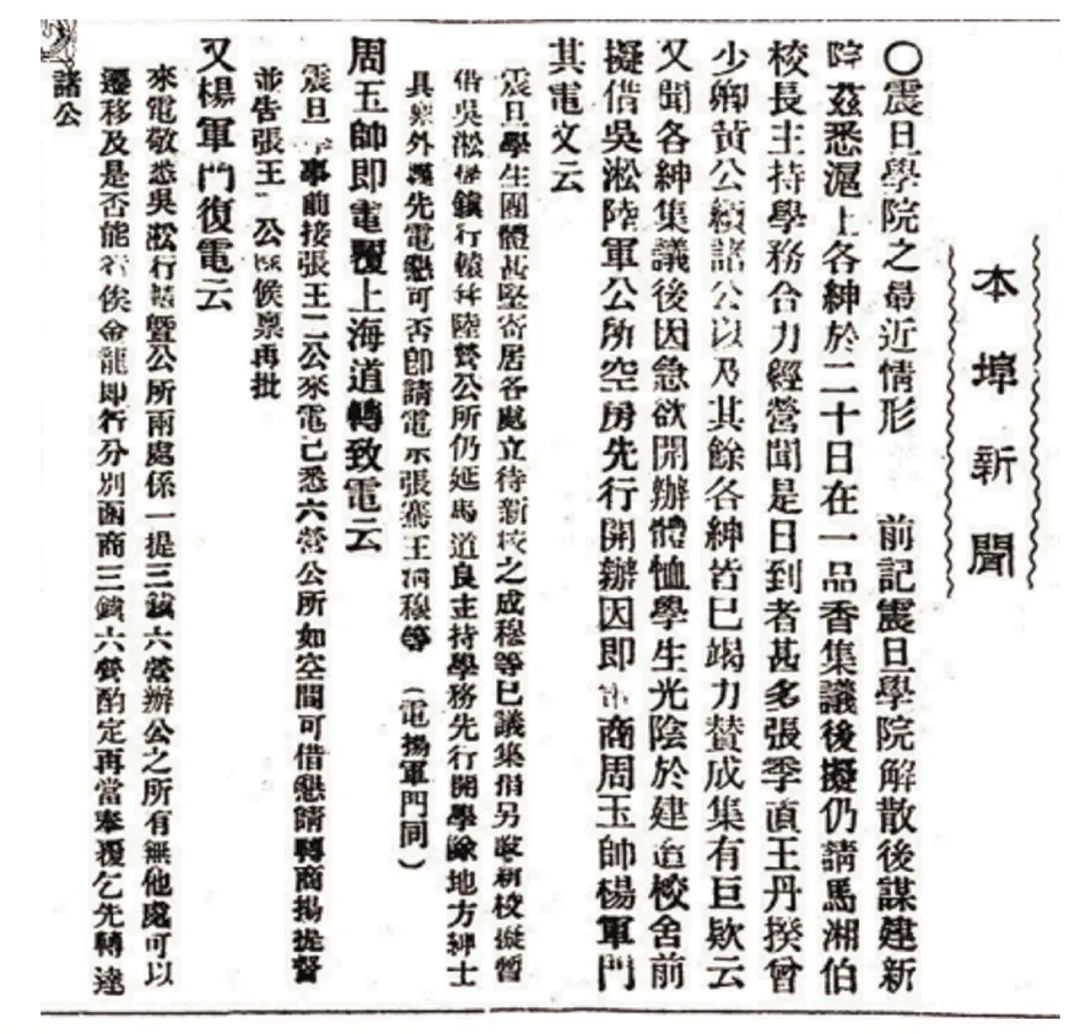 本埠新聞
〇震旦學院之最近情形　前記震旦學院解散後謀建新
院茲悉滬上各紳於二十日在一品香集議後擬仍請馬湘伯
校長主持學務合力經營聞是日到者甚多張季直王丹揆曾
少卿黃公續諸公以及其餘各紳皆已竭力贊成集有巨欵云
又聞各紳集議後因急欲開辦體恤學生光陰於建造校舍前
擬借吳淞陸軍公所空房先行開辦因即電商周玉帥楊軍門
其電文云
震旦學生團體甚堅寄居各處立待新校之成穆等已議集捐另設新校擬暫
借吳淞提鎮行轅并陸營公所仍延馬道良主持學務先行開學除地方紳士
具稟外謹先電懇可否卽請電示張謇王淸穆等（電楊軍門同）
周玉帥即電覆上海道轉致電云
震旦事前接張王二公來電已悉六營公所如空閒可借懇請轉商楊提督
並告張王公候稟再批
又楊軍門復電云
來電敬悉吳淞行轅曁公所兩處係一提三鎮六營辦公之所有無他處可以
遷移及是否能行俟金龍即行分別函商三鎮六營酌定再當奉覆乞先轉達
諸公